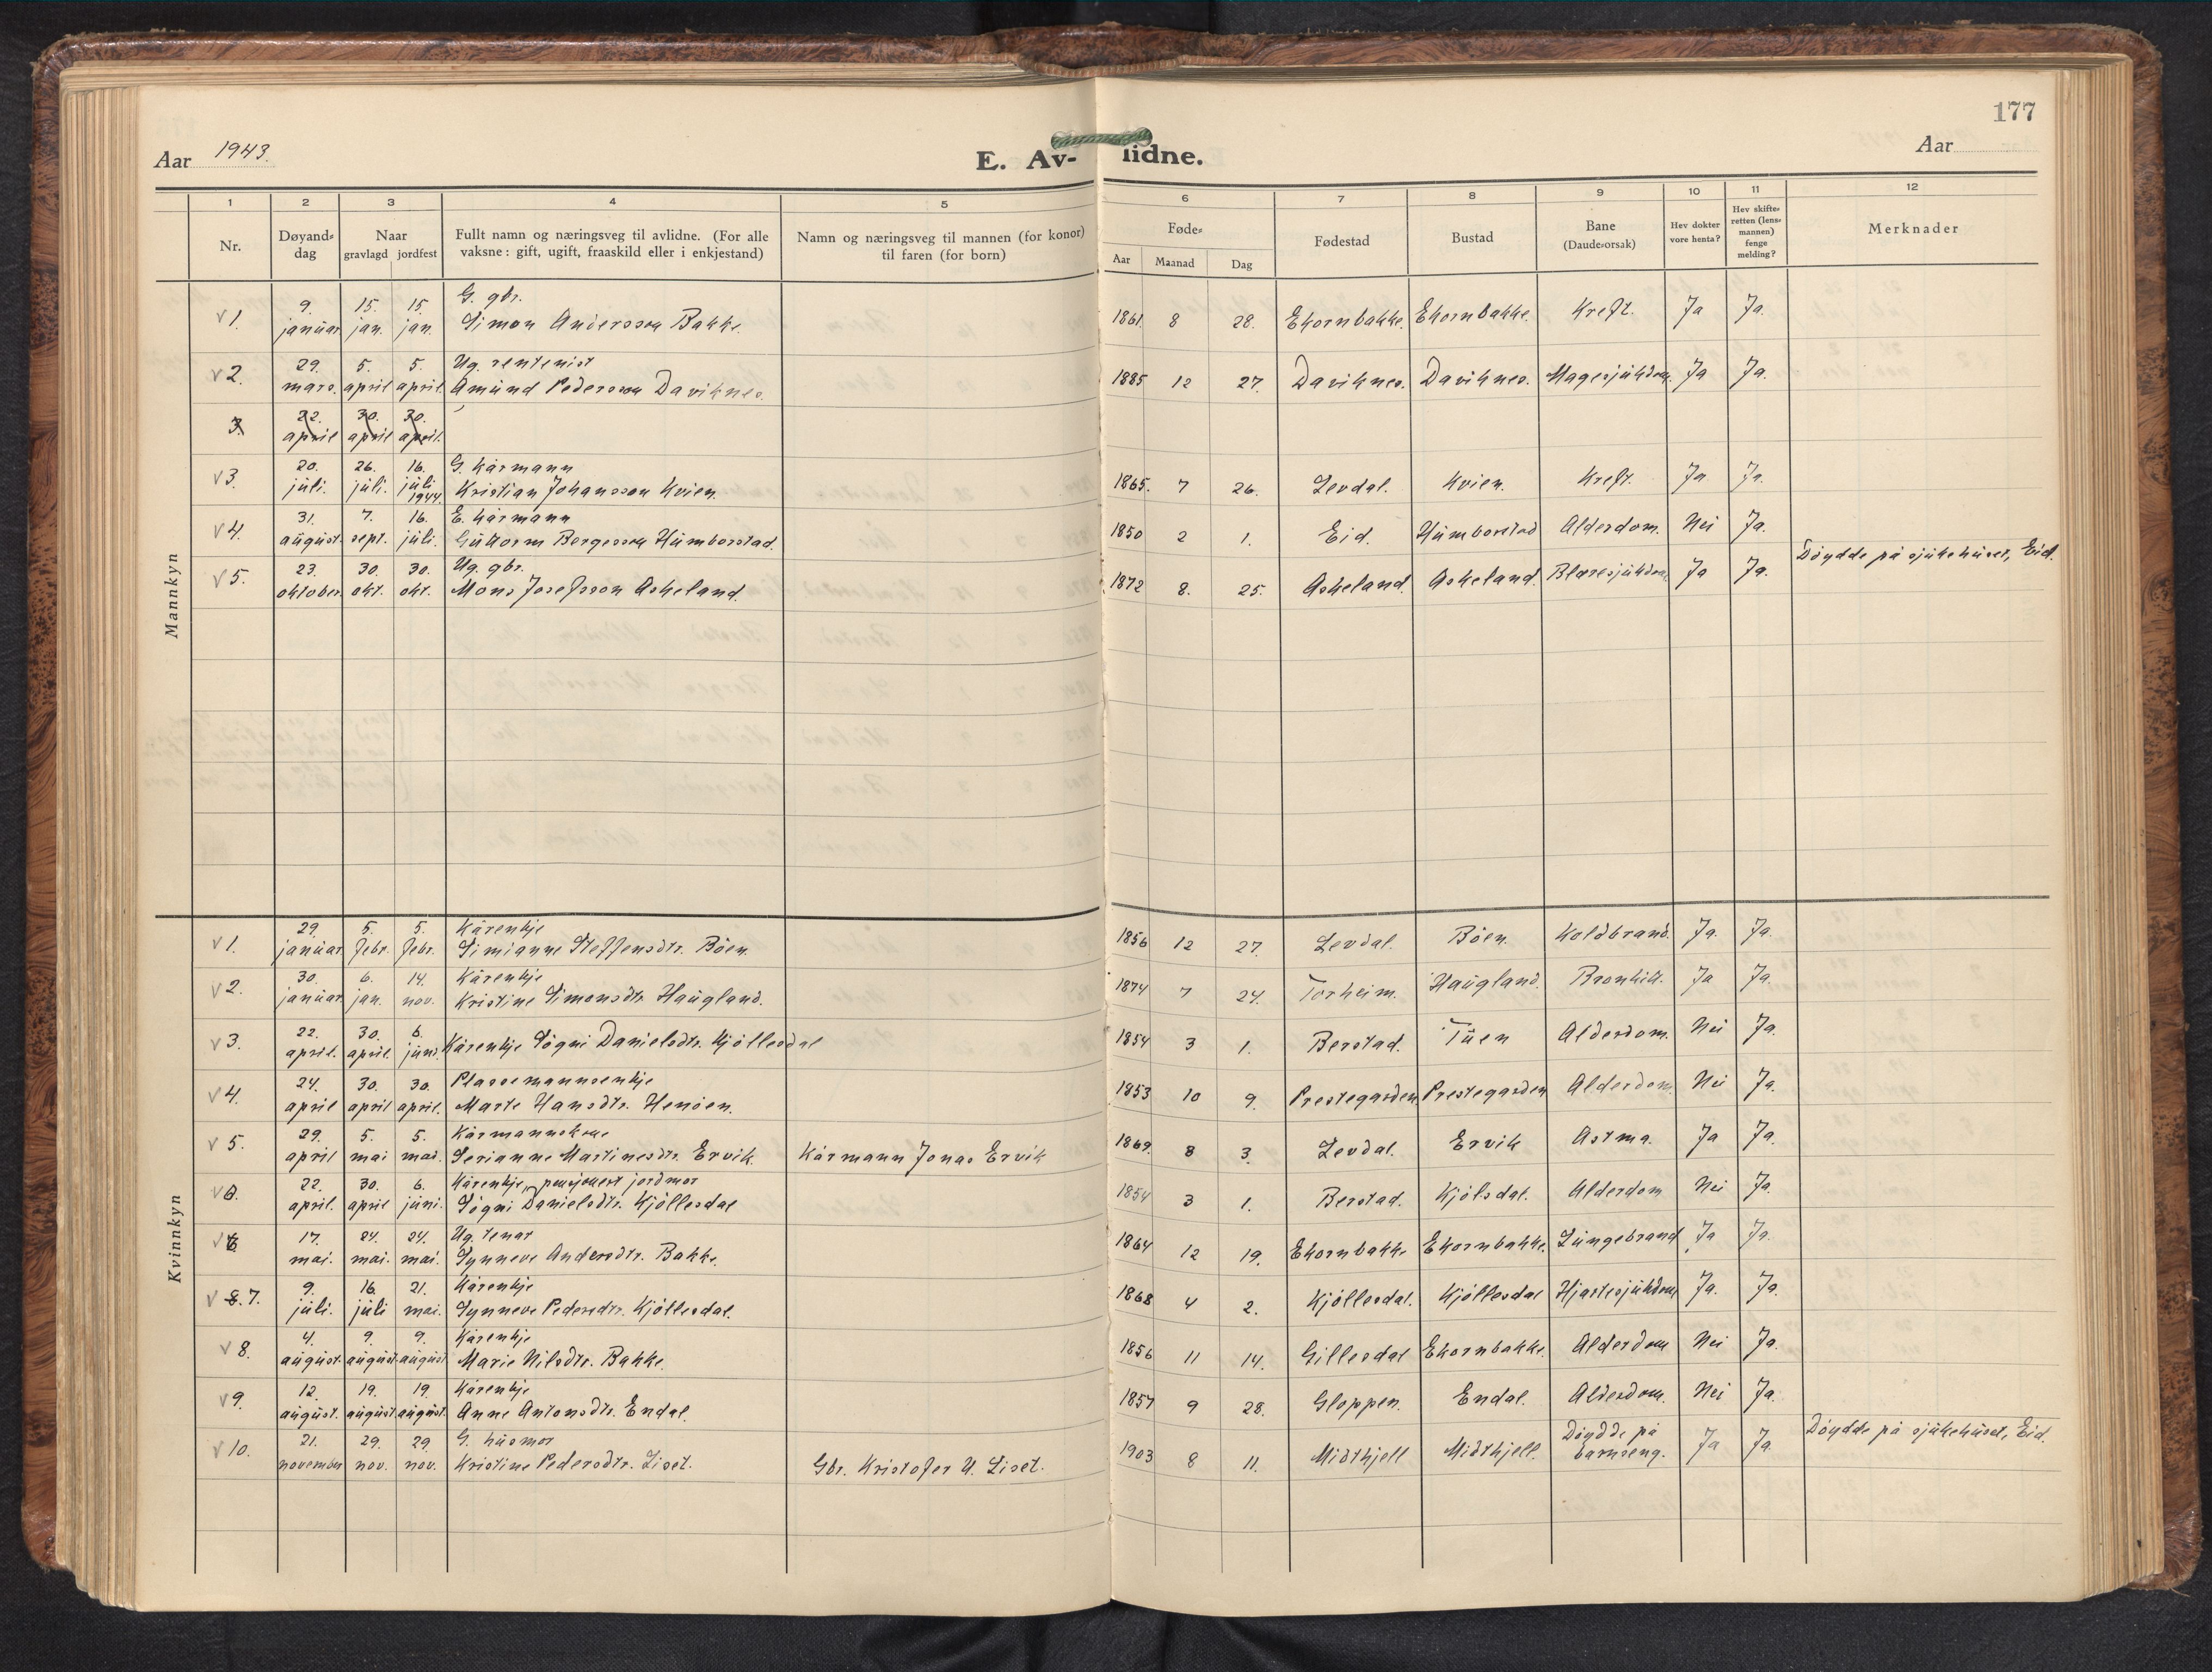 177
Aar 1943.
E. Av- lidne.
Aar
1 2 3 4 5 6 7 8 9 10 11 12
Nr.
Døyand-
dag
Naar
gravlagd jordfest
Fullt namn og næringsveg til avlidne. (For alle
vaksne: gift, ugift, fraaskild eller i enkjestand)
Namn og næringsveg til mannen (for konor)
til faren (for born)
Føde-
Aar Maanad Dag
Fødestad
Bustad
Bane
(Daude-orsak)
Hev dokter
vore henta?
Hev skifte-
retten (lens-
mannen)
fenge
melding?
Merknader
Mannkyn
9. 15. 15. G. gbr.
v 1. januar jan. jan. Simon Andersson Bakke. 1861. 8 28. Ekornbakke. Ekornbakke. Kreft. Ja Ja.
29. 5. 5. Ug. rentenist
v 2. mars. april april Amund Pedersson Daviknes. 1885 12 27. Daviknes. Daviknes. Magesjukdom. Ja Ja.
22. 30. 30.
3. april april april.
20. 26. 16. G. kårmann
v 3. juli. juli. juli 1944 Kristian Johansson Kvien. 1865. 7 26. Levdal. Kvien. Kreft. Ja Ja.
31. 7. 16. E. kårmann
v 4. august. sept. juli. Guttorm Børgesson Humborstad. 1850 2 1. Eid. Humborstad Alderdom. Nei Ja.
23. 30. 30. Ug. gbr.
v 5. oktober. okt. okt. Mons Josefsson Askeland. 1872 8. 25. Askeland. Askeland. Blæresjukdom. Ja Ja. Døydde på sjukehuset, Eid.
Kvinnkyn
29. 5. 5. Kårenkje
v 1. januar febr. febr. Simianne Steffensdtr. Bøen. 1856 12 27. Levdal. Bøen. Koldbrand. Ja. Ja.
30. 6. 14. Kårenkje
v 2. januar jan. nov. Kristine Simonsdtr. Haugland. 1874 7 24. Torheim. Haugland. Bronkitt. Ja Ja.
22. 30. 6.
v 3. april. april. juni. Kårenkje Søgni Danielsdtr. Kjøllesdal 1854 3 1. Berstad. Tuen Alderdom. Nei Ja.
24. 30. 30. Plassemannsenkje
v 4. april april april. Marte Hansdtr. Henøen. 1853 10 9. Prestegarden Prestegarden Alderdom. Nei Ja.
29. 5. 5. Kårmannskone
v 5. april mai mai. Serianne Martinesdtr. Ervik. Kårmann Jonas Ervik 1869. 8 3. Levdal. Ervik Astma. Ja Ja.
22. 30. 6. Kårenkje, pensjonert jordmor
v 6. april. april juni. Søgni Danielsdtr. Kjøllesdal 1854 3 1. Berstad. Kjølsdal. Alderdom Nei Ja.
17. 24. 24. Ug. tenar
v 6 mai. mai. mai. Synneve Andersdtr. Bakke. 1864 12 19. Ekornbakke Ekornbakke. Lungebrand Ja Ja.
9. 16. 21. Kårenkje
v 8. 7. juli. juli mai. Synneve Pedersdtr. Kjøllesdal. 1868 4 2. Kjøllesdal. Kjøllesdal Hjartesjukdom Ja. Ja.
4. 9. 9. Kårenkje
v 8. august. august. august Marie Nilsdtr. Bakke. 1856 11 14. Gillesdal Ekornbakke. Alderdom Nei Ja.
12. 19. 19. Kårenkje
v 9. august. august. august. Anne Antonsdtr. Endal. 1857 9 28. Gloppen. Endal. Alderdom. Nei Ja.
21. 29. 29. G. husmor
v 10. november nov. nov. Kristine Pedersdtr. Liset. Gbr. Kristofer U. Liset. 1903 8 11. Midthjell Midthjell. Døydde på barnseng. Ja Ja. Døydde på sjukehuset, Eid.